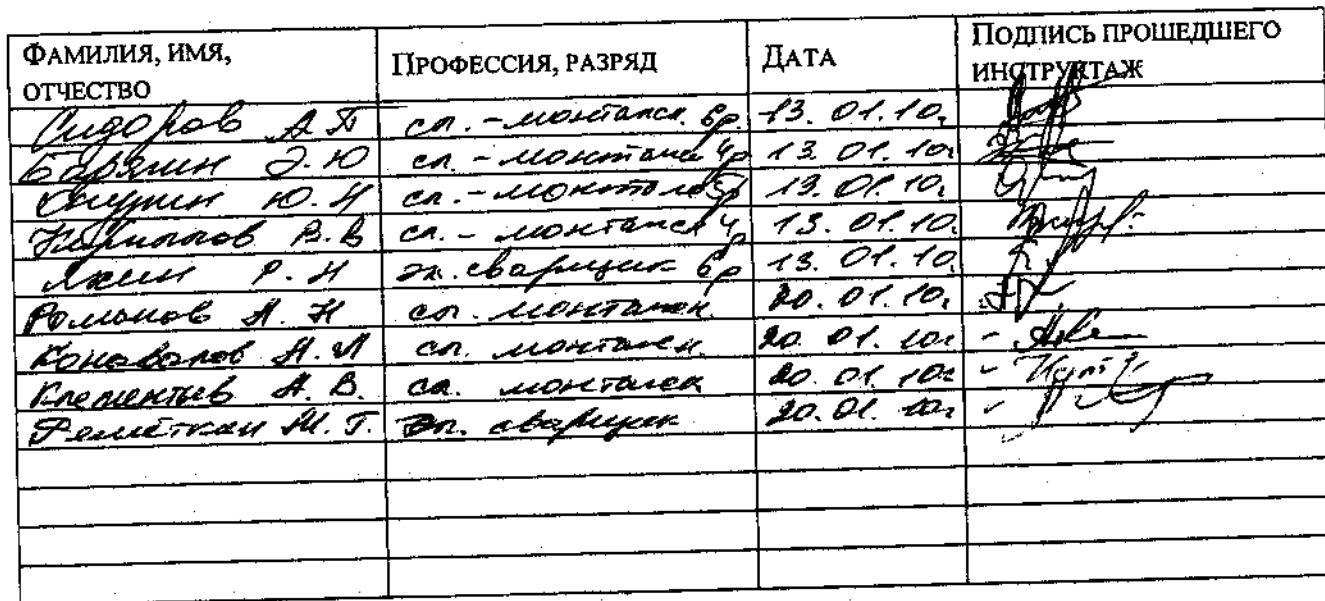 ФАМИЛИЯ, ИМЯ, ОТЧЕСТВО ПРОФЕССИЯ, РАЗРЯД ДАТА ПОДПИСЬ ПРОШЕДШЕГО ИНСТРУКТАЖ
Сидоров А.П сл.-монтажн. 6р. 13.01.10г
Э.Ю сл.-монтажн 4р 13.01.10г
Ю.Н сл.-монтажн 5р 13.01.10г
В.В сл.-монтажн 4р 13.01.10г
Яхин Р.Н эл.сварщик 6р 13.01.10г
Романов А.Н сл. монтажн 20.01.10г
Коновалов А.И сл. монтажн. 20.01.10г
Клементьев А.В. сл. монтажн 20.01.10г
М.Г. эл. сварщик 20.01.10г